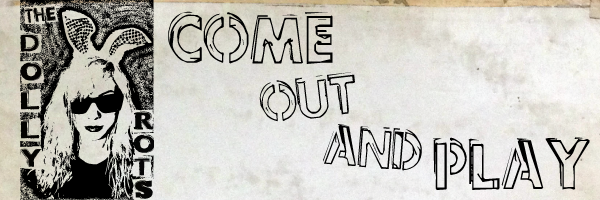 THE
DOLLY
ROTS
COME
OUT
AND PLAY